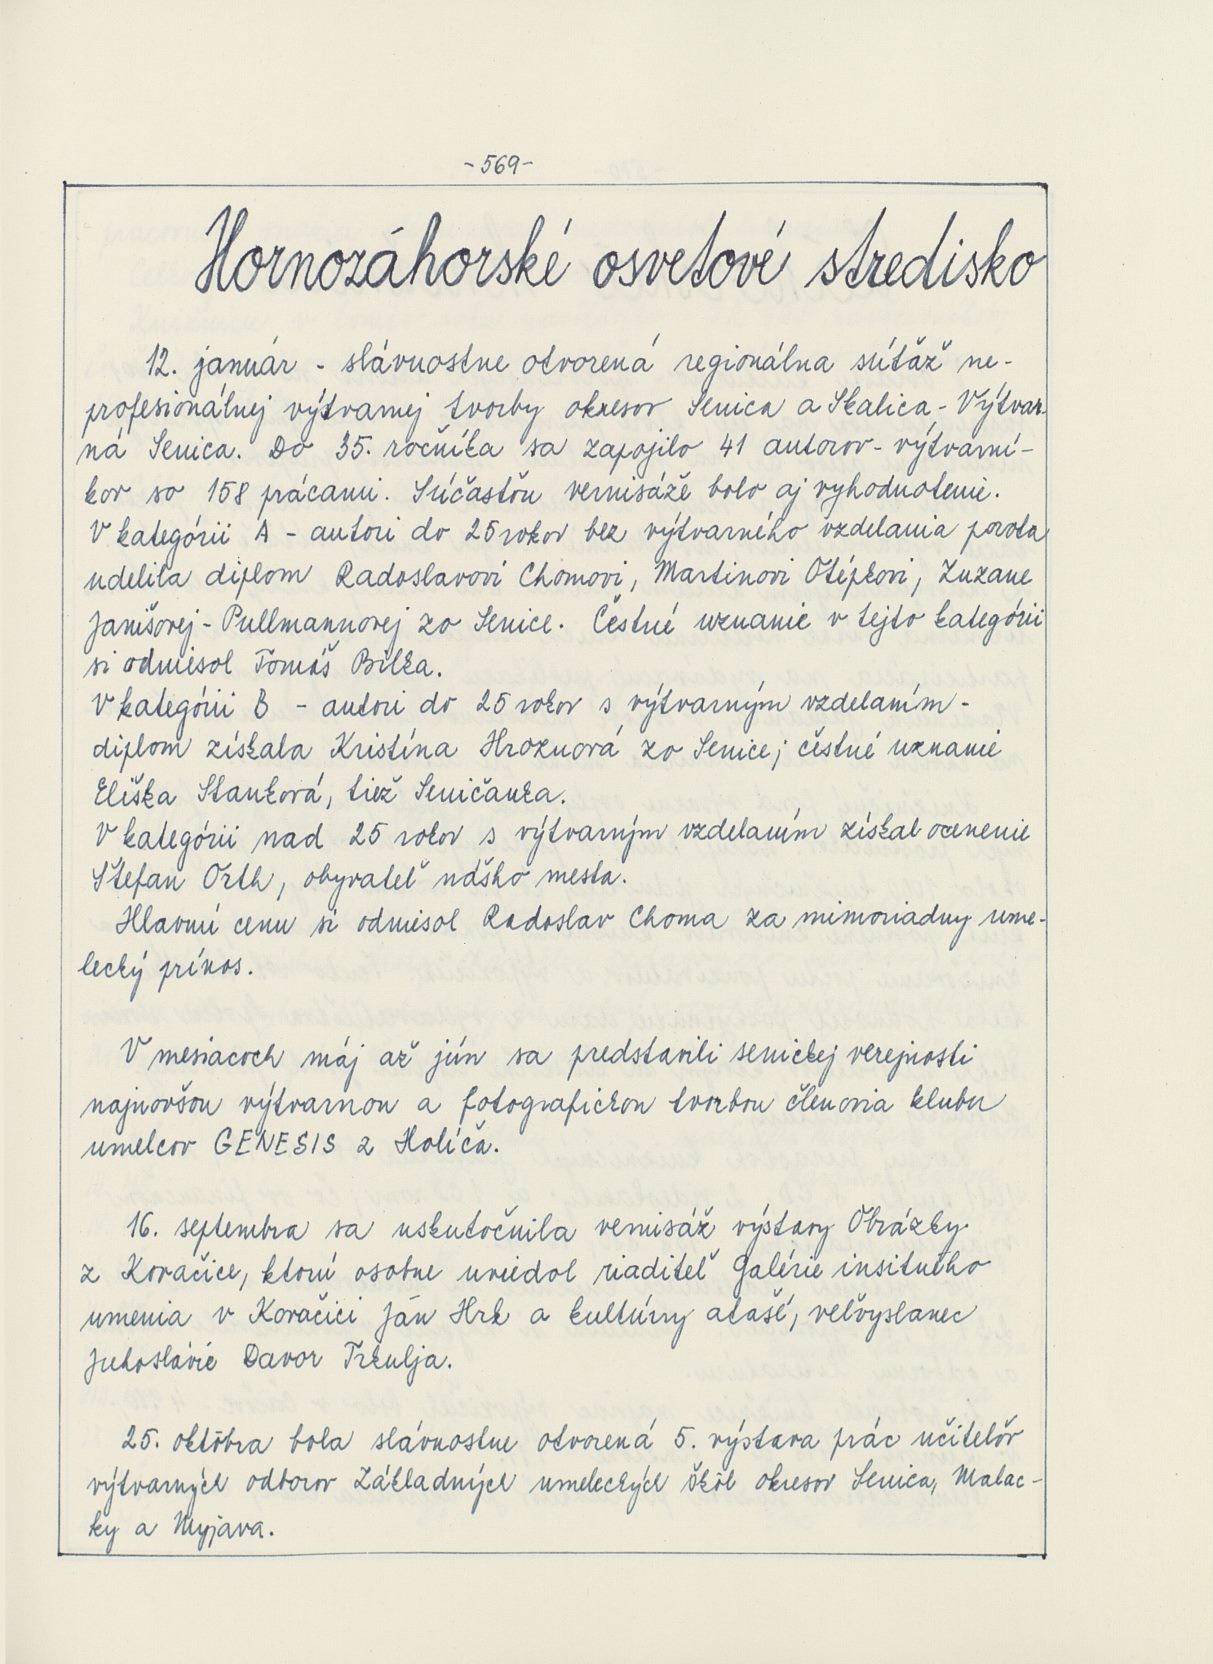 -569-
Hornozáhorské osvetové stredisko
12. január - slávnostne otvorená regionálna súťaž ne-
profesionálnej výtvarnej tvorby okresov Senica a Skalica - Výtvar-
ná Senica. Do 35. ročníka sa zapojilo 41 autorov - výtvarní-
kov so 158 prácami. Súčasťou vernisáže bolo aj vyhodnotenie.
V kategórii A - autori do 25 rokov bez výtvarného vzdelania porota
udelila diplom Radoslavovi Chomovi, Martinovi Otépkovi, Zuzane
Janišovej - Pullmannovej zo Senice. Čestné uznanie v tejto kategórii
si odniesol Tomáš Bilka.
V kategórii B - autori do 25 rokov s výtvarným vzdelaním -
diplom získala Kristína Hroznová zo Senice; čestné uznanie
Eliška Stanková, tiež Seničanka.
V kategórii nad 25 rokov s výtvarným vzdelaním získal ocenenie
Štefan Orth, obyvateľ nášho mesta.
Hlavnú cenu si odniesol Radoslav Choma za mimoriadny ume-
lecký prínos.
V mesiacoch máj až jún sa predstavili senickej verejnosti
najnovšou výtvarnou a fotografickou tvorbou členovia klubu
umelcov GENESIS z Holíča.
16. septembra sa uskutočnila vernisáž výstavy Obrázky
z Kovačice, ktorú osobne uviedol riaditeľ Galérie insitného
umenia v Kovačici Ján Hrk a kultúrny atašé, veľvyslanec
Juhoslávie Davor Trkulja.
25. októbra bola slávnostne otvorená 5. výstava prác učiteľov
výtvarných odborov Základných umeleckých škôl okresov Senica, Malac-
ky a Myjava.